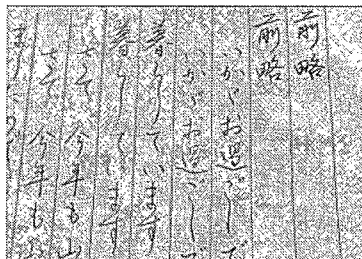 前略
前略
いかゞお過ごしで
いかゞお過ごしで
暮らしています
暮らしています
さて 今年も山
さて 今年も